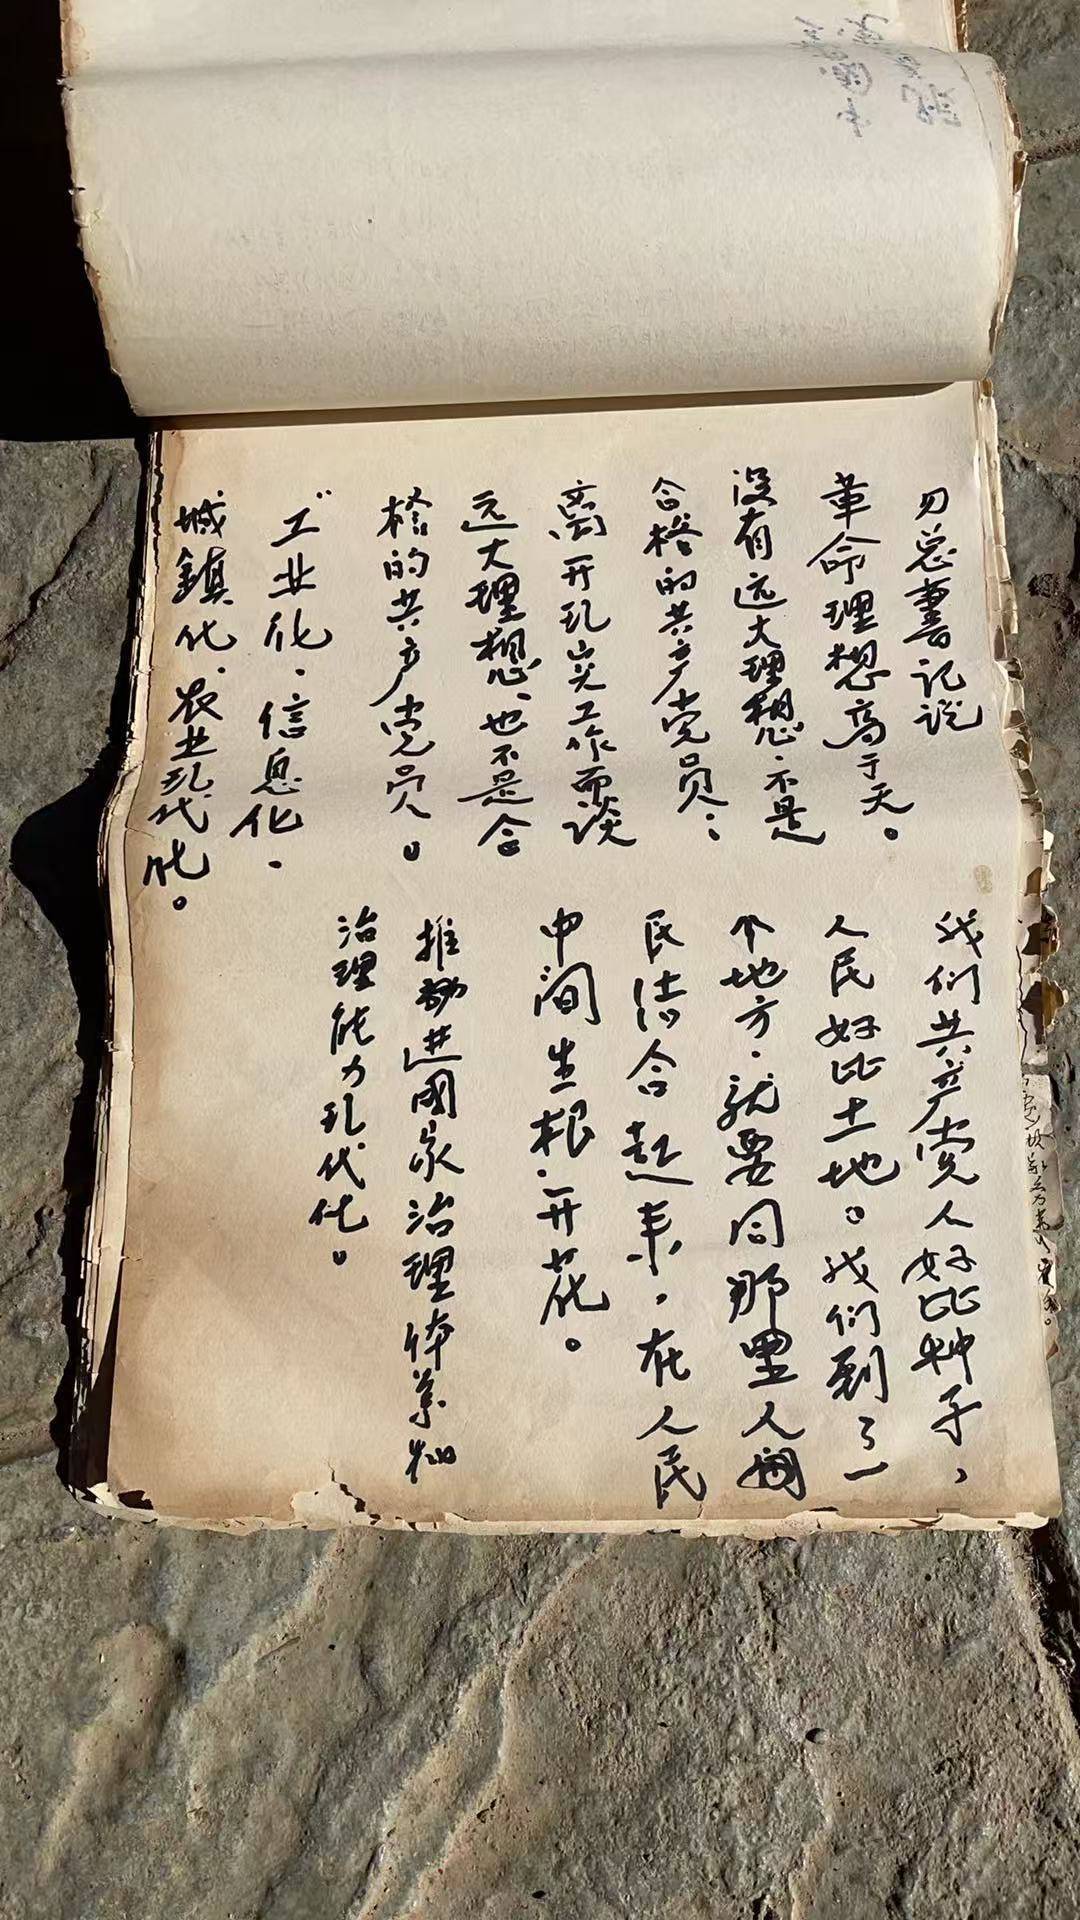 习总书记说
革命理想高于天。
没有远大理想、不是
合格的共产党员;
离开现实工作而谈
远大理想、也不是合
格的共产党员。
"工业化、信息化、
城鎮化、农业现代化。
我们共产党人好比种子,
人民好比土地。我们到了一
个地方、就要同那里人
民结合起来,在人民
中间生根、开花。
推进國家治理体系和
治理能力现代化。